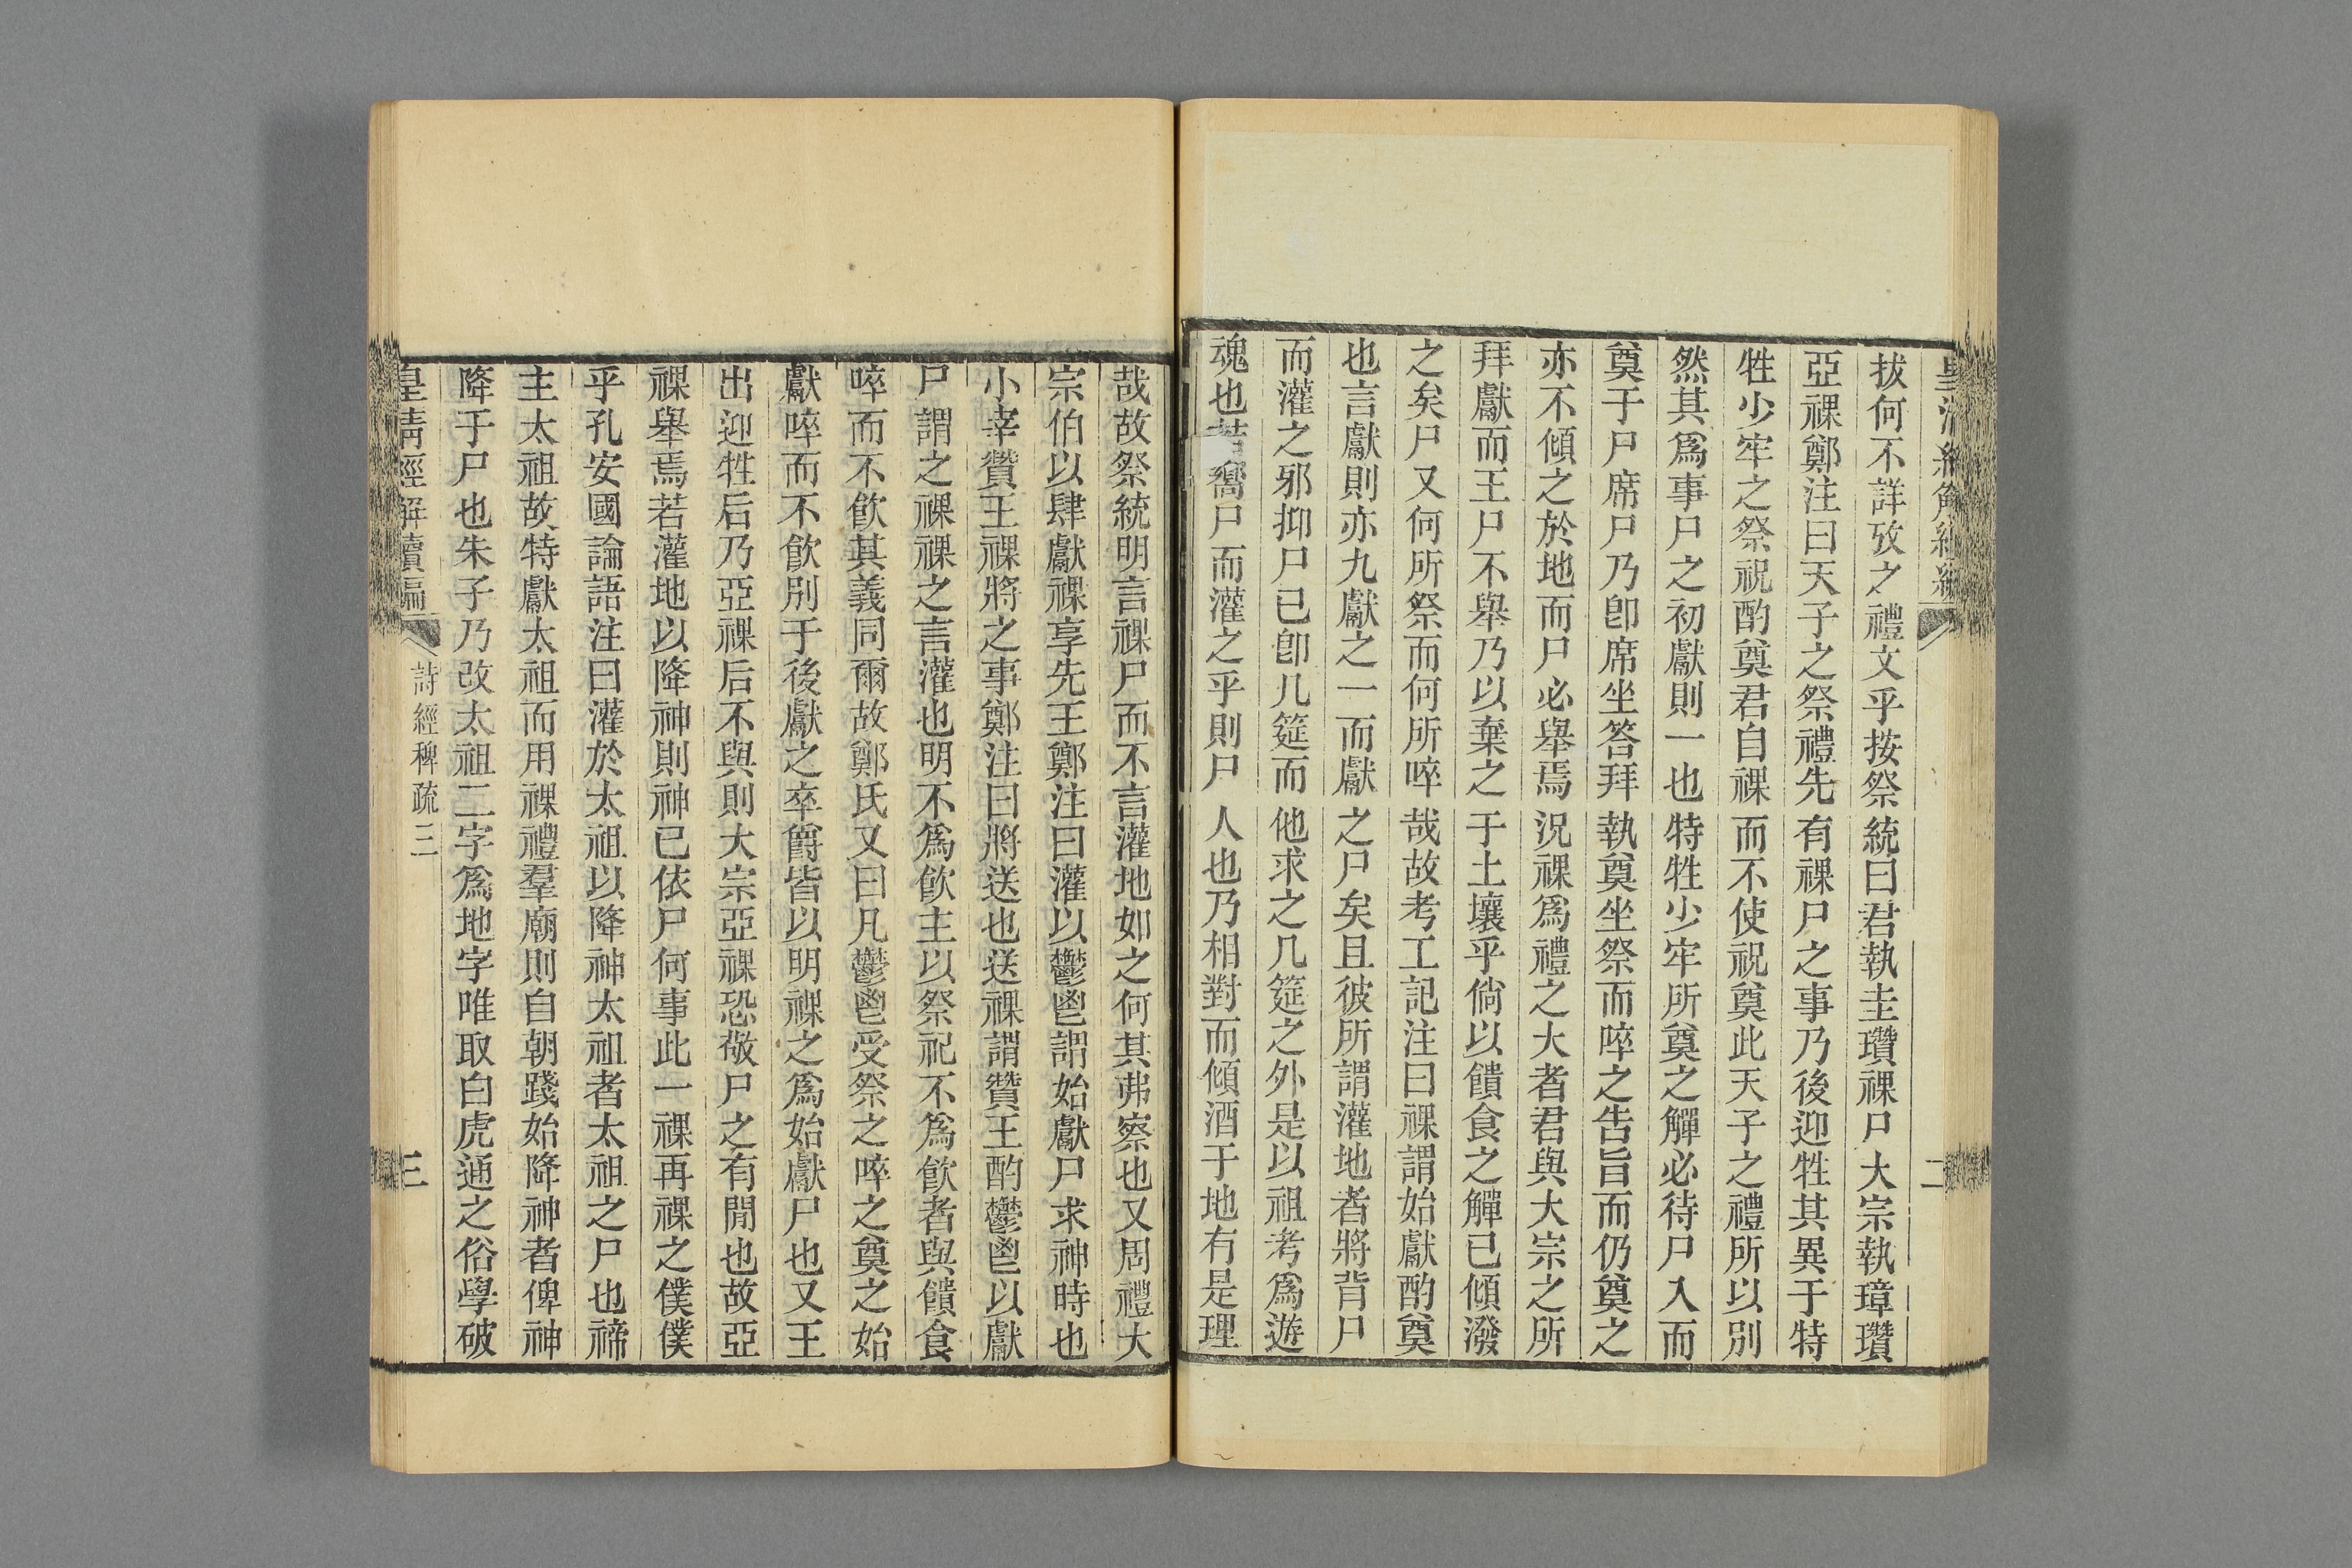 拔何不詳攷之禮文乎按祭統曰君執圭瓚祼尸大宗執璋瓚
亞祼鄭注曰天子之祭禮先有祼尸之事乃後迎牲其異于特
牲少牢之祭祝酌奠君自祼而不使祝奠此天子之禮所以別
然其爲事尸之初獻則一也特牲少牢所奠之觶必待尸入而
奠于尸席尸乃卽席坐答拜執奠坐祭而啐之告旨而仍奠之
亦不傾之於地而尸必舉焉況祼爲禮之大者君與大宗之所
拜獻而王尸不舉乃以棄之于土壤乎倘以饋食之觶已傾潑
之矣尸又何所祭而何所啐哉故考工記注曰祼謂始獻酌奠
也言獻則亦九獻之一而獻之尸矣且彼所謂灌地者將背尸
而灌之邪抑尸已卽几筵而他求之几筵之外是以祖考爲遊
魂也若嚮尸而灌之乎則尸人也乃相對而傾酒于地有是理
二
哉故祭統明言祼尸而不言灌地如之何其弗察也又周禮大
宗伯以肆獻祼享先王鄭注曰灌以鬱鬯謂始獻尸求神時也
小宰贊王祼將之事鄭注曰將送也送祼謂贊王酌鬱鬯以獻
尸謂之祼祼之言灌也明不爲飮主以祭祀不爲飮者與饋食
啐而不飮其義同爾故鄭氏又曰凡鬱鬯受祭之啐之奠之始
獻啐而不飮別于後獻之卒爵皆以明祼之爲始獻尸也又王
出迎牲后乃亞祼后不與則大宗亞祼恐敬尸之有閒也故亞
祼舉焉若灌地以降神則神已依尸何事此一祼再祼之僕僕
乎孔安國論語注曰灌於太祖以降神太祖者太祖之尸也禘
主太祖故特獻太祖而用祼禮羣廟則自朝踐始降神者俾神
降于尸也朱子乃改太祖二字爲地字唯取白虎通之俗學破
皇淸經解續編
詩經稗疏三
三